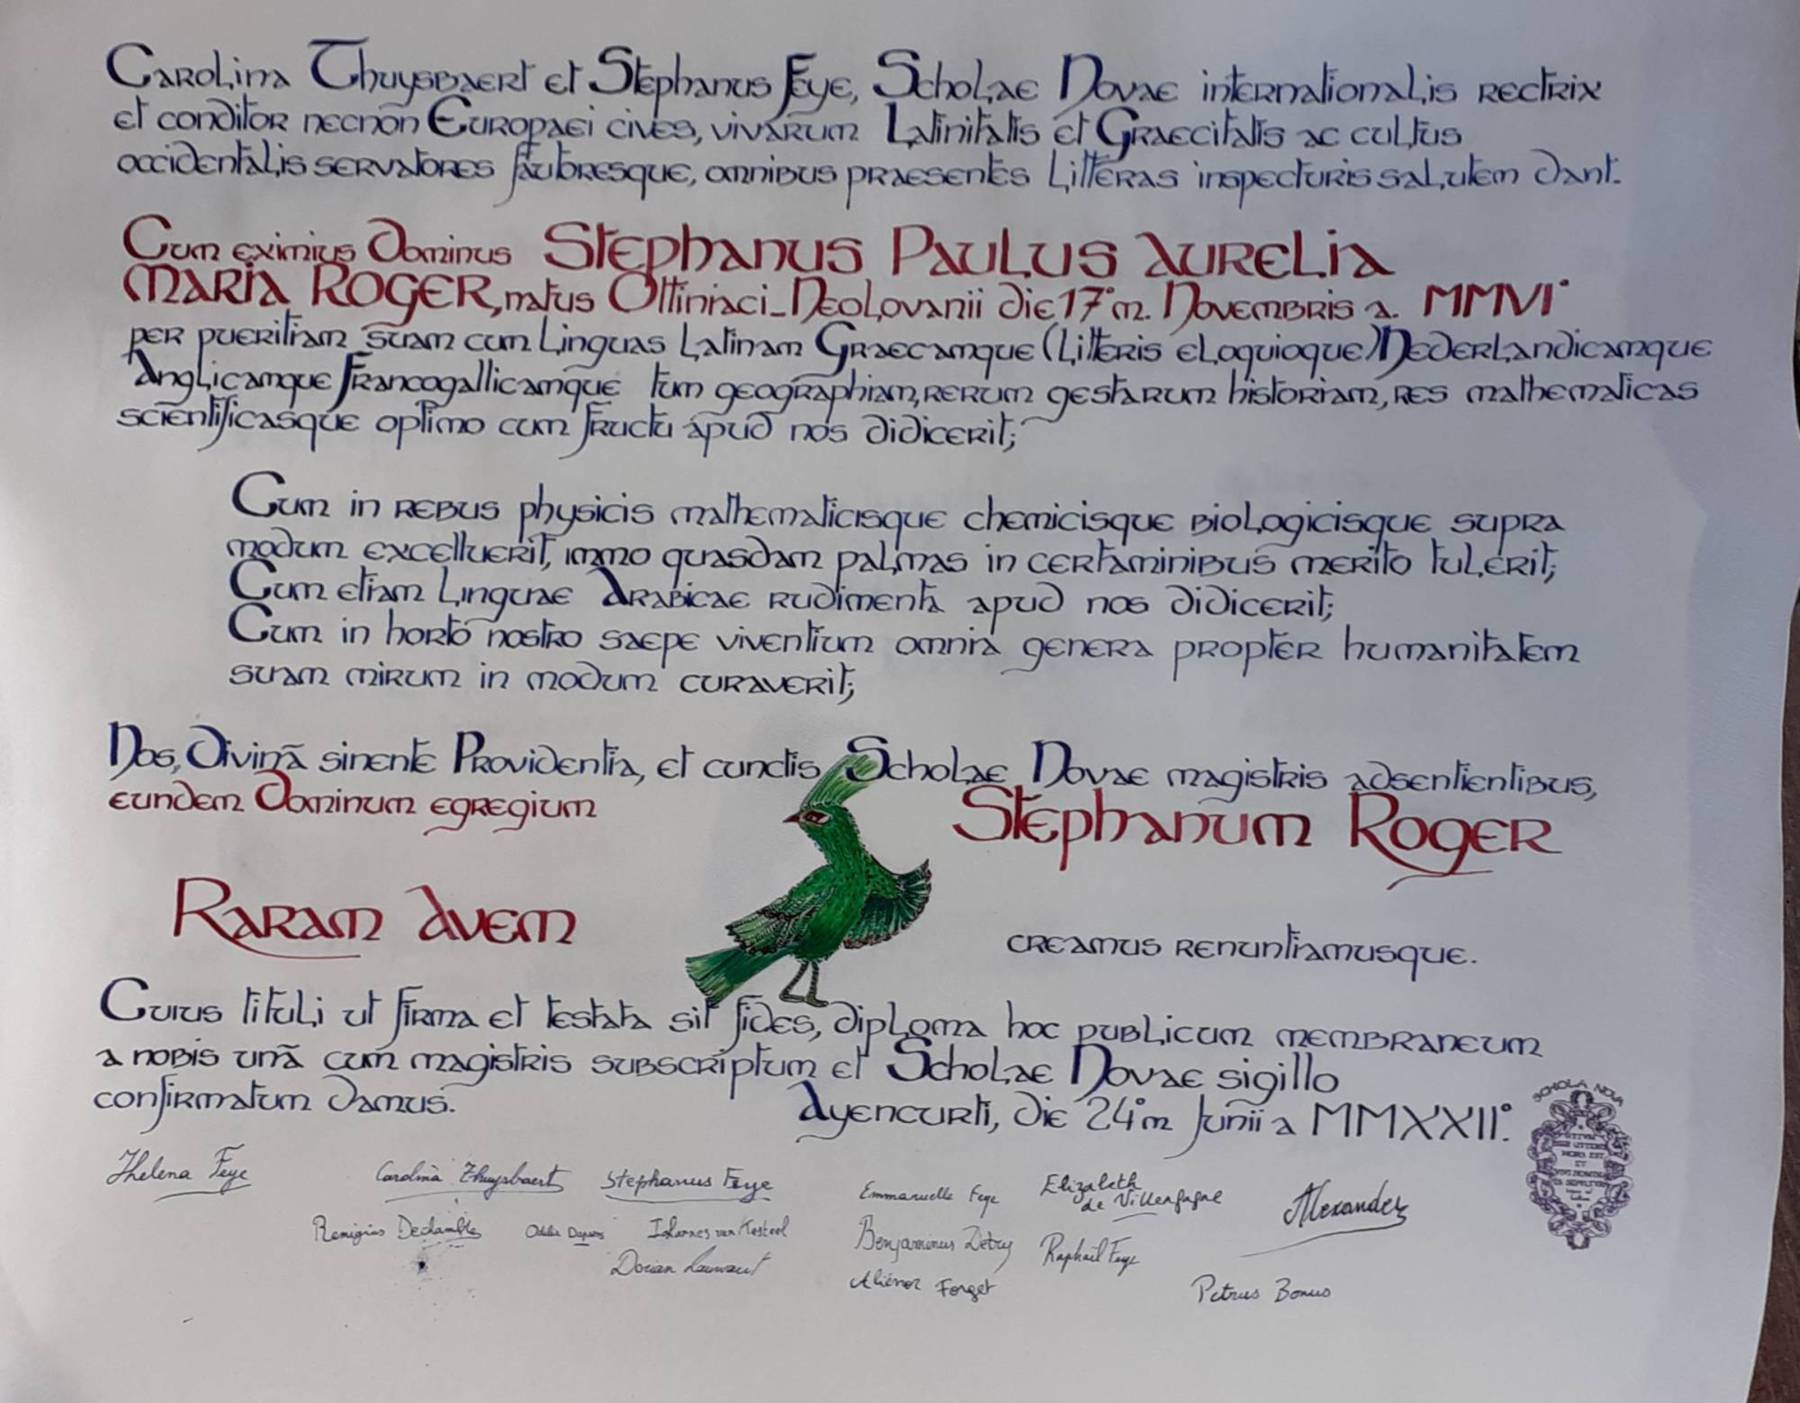 Carolina Thuysbaert et Stephanus Feye, Scholae Novae internationalis rectrix
et conditor necnōn Europaei cives, vivārum Latinitatis et Graecitatis ac cultus
occidentalis servatores fautoresque, omnibus praesentes litteras inspecturis salutem dant.
Cum eximius Dominus Stephanus Paulus Aurelia
Maria Roger, natus Ottiniaci-Neolovanii die 17°m. Novembris a. MMVI°
per pueritiam suam cum linguas Latinam Graecamque (litteris eloquioque) Nederlandicamque
Anglicamque Francogallicamque tum geographiam, rerum gestarum historiam, res mathematicas
scientificasque optimo cum fructu apud nos didicerit;
Cum in rebus physicis mathematicisque chemicisque biologicisque supra
modum excelluerit, immo quasdam palmas in certaminibus merito tulerit;
Cum etiam linguae Arabicae rudimenta apud nos didicerit;
Cum in horto nostro saepe viventium omnia genera propter humanitatem
suam mirum in modum curaverit;
Nos, Divinā sinente Providentia, et cunctis Scholae Novae magistris adsentientibus,
eundem Dominum egregium Stephanum Roger
Raram avem creamus renuntiamusque.
Cuius tituli ut firma et testata sit fides, diploma hoc publicum membraneum
a nobis unā cum magistris subscriptum et Scholae Novae sigillo
confirmatum damus. Ayencurti, die 24°m Junii a MMXXII°.
SCHOLA NOVA
Thelena Feye Carolina Thuysbaert Stephanus Feye Emmanuelle Feye Elizabeth de Villenfagne Alexander
Remigius Declamble Iohannes van Kasteel Benjaminus Detry Raphaël Feye
Dorian Aliénor Forget Petrus Bonus